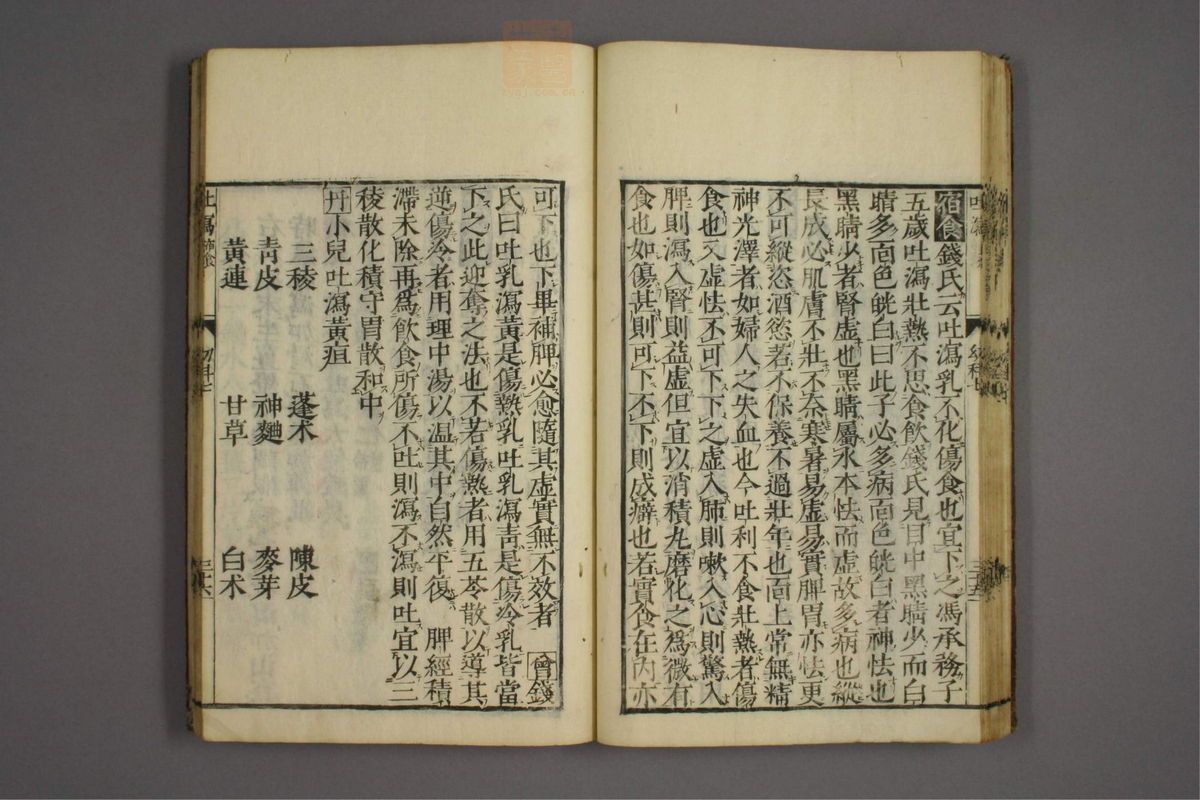 宿食錢氏云吐瀉乳不化傷食也宜下之馮承務子
五歲吐瀉壯熱不思食飲錢氏見目中黑睛少而白
睛多面色㿠白曰此子必多病面色㿠白者神怯也
黑睛少者腎虛也黑睛屬水本怯而虛故多病也縱
長成必肌膚不壯不奈寒暑易虛易實脾胃亦怯更
不可縱恣酒慾若不保養不過壯年也面上常無精
神光澤者如婦人之失血也今吐利不食壯熱者傷
食也又虛怯不可下下之虛入肺則嗽入心則驚入
脾則瀉入腎則益虛但宜以消積丸磨化之爲微有
食也如傷甚則可下不下則成癖也若實食在內亦
可下也下畢補脾必愈隨其虛實無不效者 會錢
氏曰吐乳瀉黃是傷熱乳吐乳瀉靑是傷冷乳皆當
下之此迎奪之法也不若傷熱者用五苓散以導其
逆傷冷者用理中湯以温其中自然平復 脾經積
滯未除再爲飲食所傷不吐則瀉不瀉則吐宜以三
稜散化積守胃散和中
丹小兒吐瀉黃疸
三稜 蓬术 陳皮
靑皮 神麯 麥芽
黃連 甘草 白术
吐瀉